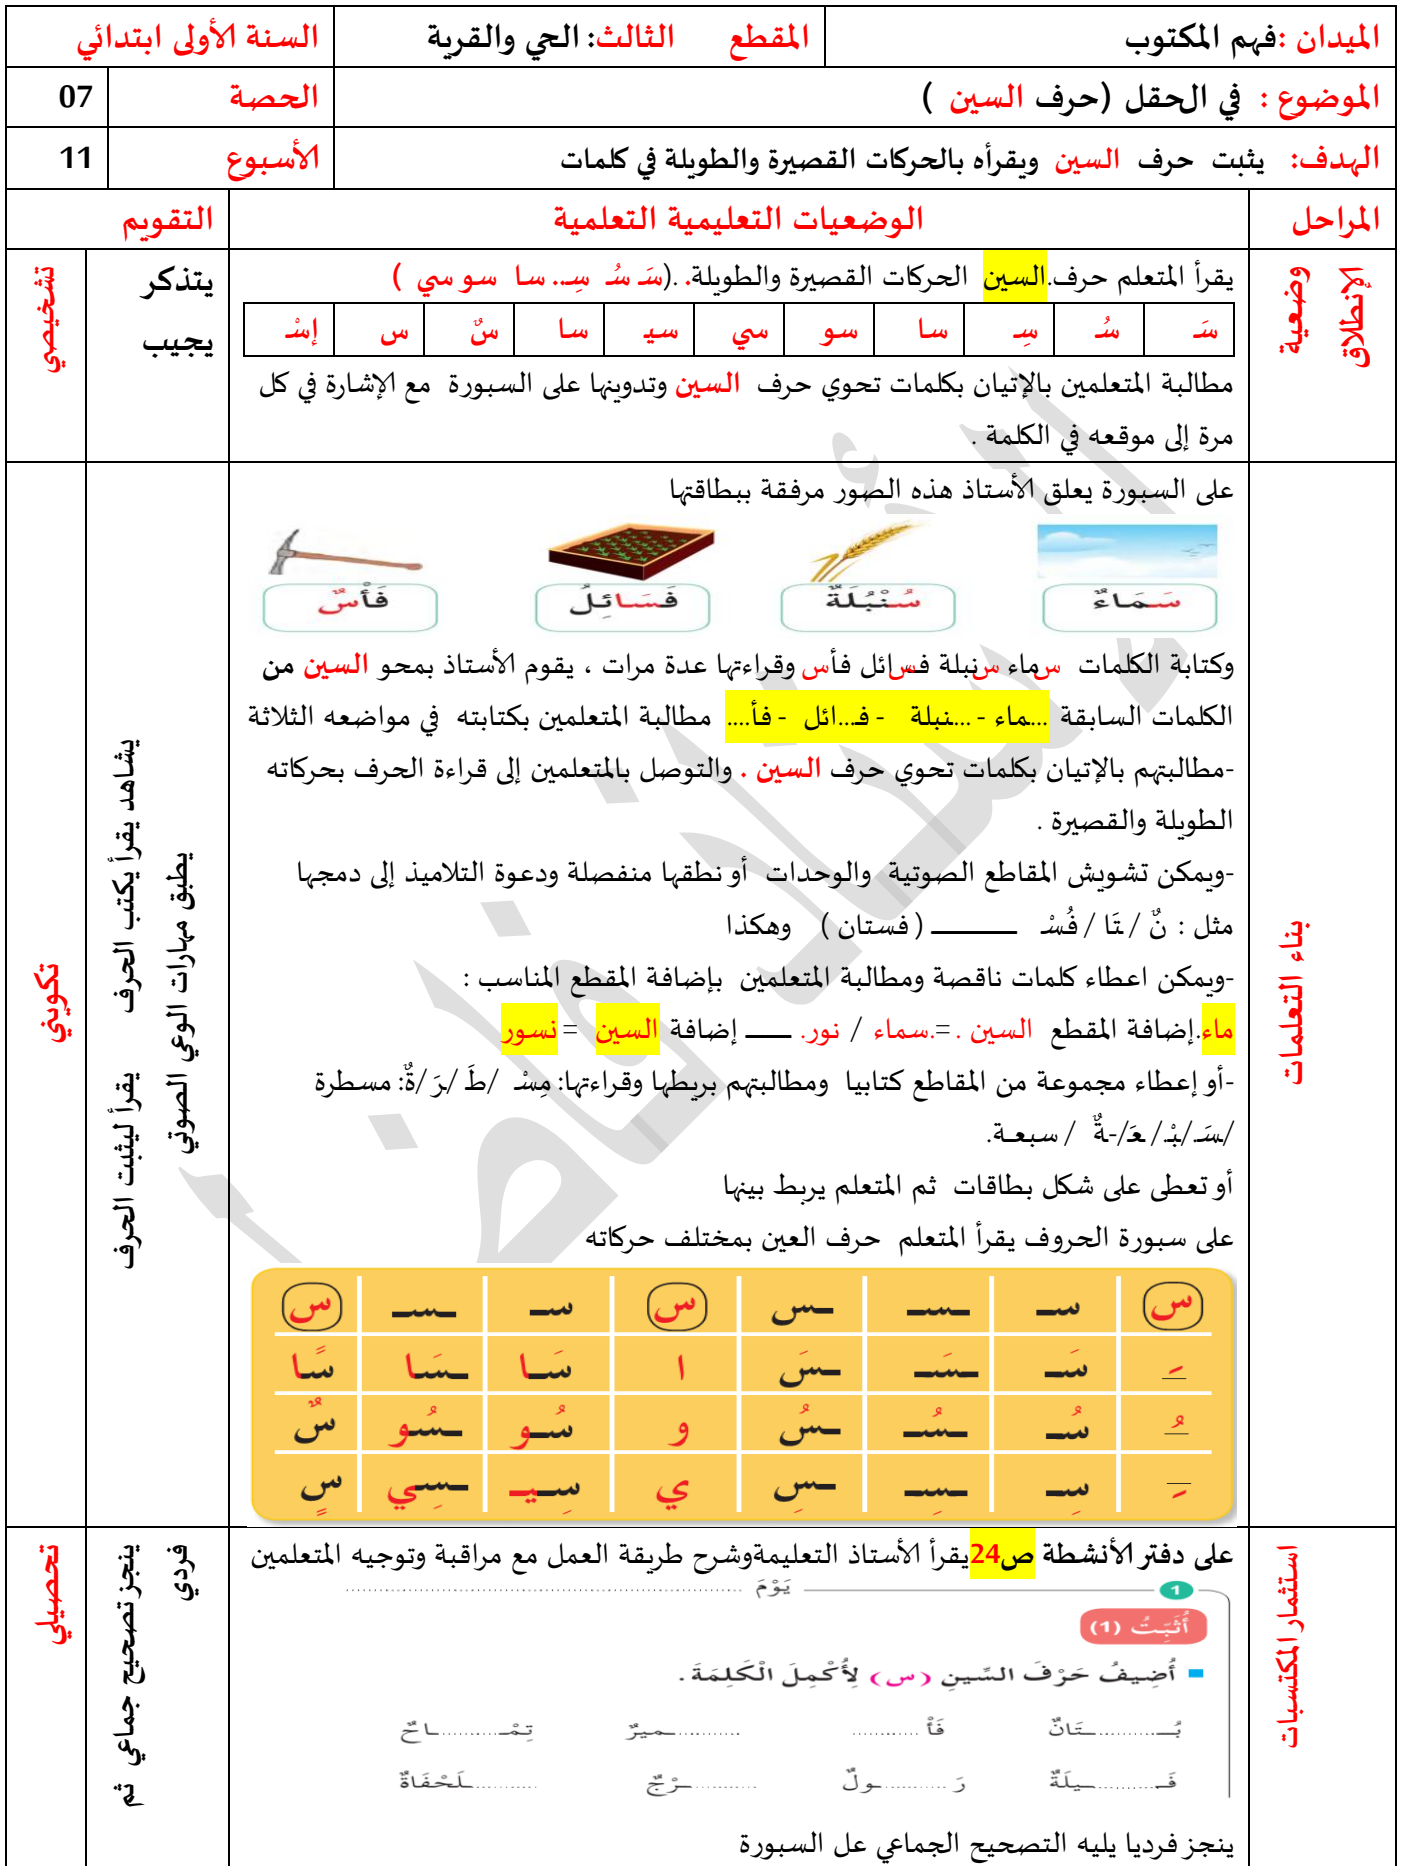 الميدان :فهم المكتوب
المقطع الثالث: الحي والقرية
السنة الأولى ابتدائي
الموضوع : في الحقل (حرف السين )
الحصة
07
الهدف: يثبت حرف السين ويقرأه بالحركات القصيرة والطويلة في كلمات
الأسبوع
11
المراحل
الوضعيات التعليمية التعلمية
التقويم
وضعية
الإنطلاق
يقرأ المتعلم حرف.السين الحركات القصيرة والطويلة. .(سَـ سُـ سِـ.. سا سو سي )
سَـ سُـ سِـ سا سو سي سيـ سا سٌ س إسْـ
مطالبة المتعلمين بالإتيان بكلمات تحوي حرف السين وتدوينها على السبورة مع الإشارة في كل
مرة إلى موقعه في الكلمة .
يتذكر
يجيب
تشخيصي
بناء التعلمات
على السبورة يعلق الأستاذ هذه الصور مرفقة ببطاقتها
سَـمَـاءٌ سُنْبُلَةٌ فَسَـائِـلُ فَأْسٌ
وكتابة الكلمات سماء سنبلة فسائل فأس وقراءتها عدة مرات ، يقوم الأستاذ بمحو السين من
الكلمات السابقة ...ماء - ...نبلة - فـ...ائل - فأ.... مطالبة المتعلمين بكتابته في مواضعه الثلاثة
-مطالبتهم بالإتيان بكلمات تحوي حرف السين . والتوصل بالمتعلمين إلى قراءة الحرف بحركاته
الطويلة والقصيرة .
-ويمكن تشويش المقاطع الصوتية والوحدات أو نطقها منفصلة ودعوة التلاميذ إلى دمجها
مثل : نٌ / تَا / فُسْـ ـــــــــ ( فستان ) وهكذا
-ويمكن اعطاء كلمات ناقصة ومطالبة المتعلمين بإضافة المقطع المناسب :
ماء.إضافة المقطع السين .=.سماء / نور. ـــــ إضافة السين =نسور
-أو إعطاء مجموعة من المقاطع كتابيا ومطالبتهم بربطها وقراءتها: مِسْـ /طَ /رَ /ةٌ: مسطرة
/سَـ/بْـ/ عَـ/ـةٌ / سبعـة.
أو تعطى على شكل بطاقات ثم المتعلم يربط بينها
على سبورة الحروف يقرأ المتعلم حرف العين بمختلف حركاته
س سـ ـسـ ـس س سـ ـسـ س
ـَ سَـ ـسَـ ـسَ ا سَـا ـسَـا سًـا
ـُ سُـ ـسُـ ـسُ و سُـو ـسُـو سٌ
ـِ سِـ ـسِـ ـسِ ي سِـيـ ـسِـي سٍ
يشاهد يقرأ يكتب الحرف يقرأ ليثبت الحرف
يطبق مهارات الوعي الصوتي
تكويني
استثمار المكتسبات
على دفتر الأنشطة ص24يقرأ الأستاذ التعليمةوشرح طريقة العمل مع مراقبة وتوجيه المتعلمين
1 يَوْمَ ....................
أُثَبِّتُ (1)
أُضِيفُ حَرْفَ السِّينِ (س) لِأُكْمِلَ الْكَلِمَةَ .
بُـ............ـتَانٌ فَأْ ............ ............ـميرٌ تِمْـ............ـاحٌ
فَـ............ـيلَةٌ رَ ............ـولٌ ............ـرْجٌ ............ـلَحْفَاةٌ
ينجز فرديا يليه التصحيح الجماعي عل السبورة
ينجز تصحيح جماعي ثم
فردي
تحصيلي